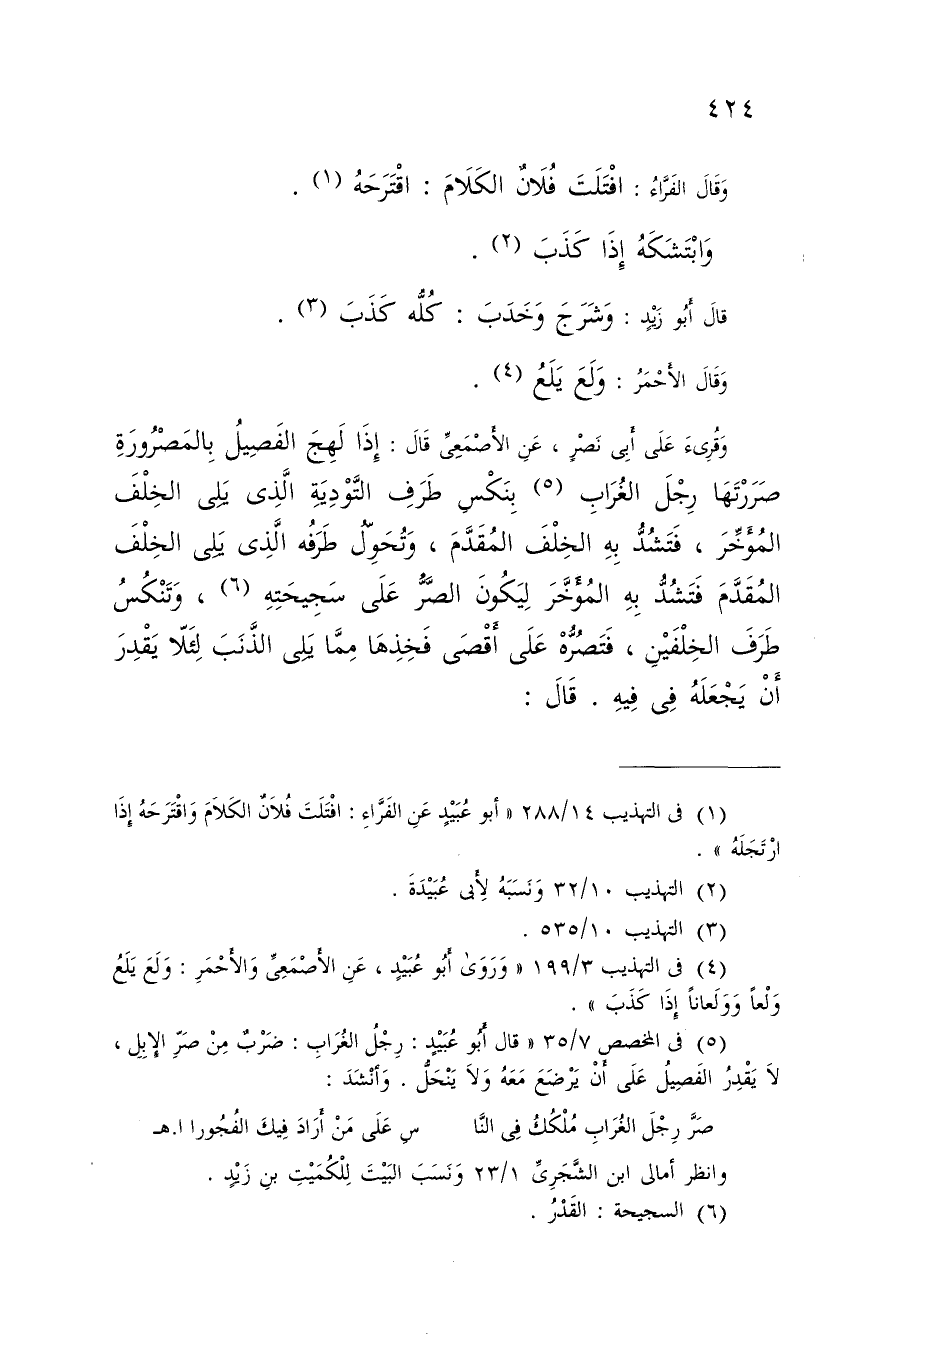 ٤٢٤
وَقَالَ الفَرَّاءُ : افْتَلَتَ فُلَانٌ الكَلَامَ : اقْتَرَحَهُ (١) .
وَابْتَشَكَهُ إِذَا كَذَبَ (٢) .
قالَ أَبُو زَيْدٍ : وَشَرَجَ وَخَدَبَ : كُلُّه كَذَبَ (٣) .
وَقَالَ الأَحْمَرُ : وَلَعَ يَلَعُ (٤) .
وَقُرِىءَ عَلَى أَبِى نَصْرٍ ، عَنِ الأَصْمَعِىِّ قَالَ : إِذَا لَهِجَ الفَصِيلُ بِالمَصْرُورَةِ
صَرَرْتَهَا رِجْلَ الغُرَابِ (٥) بِنَكْسِ طَرَفِ التَّوْدِيَةِ الَّذِى يَلِى الخِلْفَ
المُؤَخَّرَ ، فَتَشُدُّ بِهِ الخِلْفَ المُقَدَّمَ ، وَتُحَوِّلُ طَرَفُه الَّذِى يَلِى الخِلْفَ
المُقَدَّمَ فَتَشُدُّ بِهِ المُؤَخَّرَ لِيَكُونَ الصَّرُّ عَلَى سَجِيحَتِهِ (٦) ، وَتَنْكُسُ
طَرَفَ الخِلْفَيْنِ ، فَتَصُرُّهْ عَلَى أَقْصَى فَخِذِهَا مِمَّا يَلِى الذَّنَبَ لِئَلَّا يَقْدِرَ
أَنْ يَجْعَلَهُ فِى فِيهِ . قَالَ :
(١) فى التهذيب ٢٨٨/١٤ « أبو عُبَيْدٍ عَنِ الفَرَّاءِ : افْتَلَتَ فُلَانٌ الكَلَامَ وَاقْتَرَحَهُ إِذَا
ارْتَجَلَهُ » .
(٢) التهذيب ٣٢/١٠ وَنَسَبَهُ لِأَبِى عُبَيْدَةَ .
(٣) التهذيب ٥٣٥/١٠ .
(٤) فى التهذيب ١٩٩/٣ « وَرَوَىٰ أَبُو عُبَيْدٍ ، عَنِ الأَصْمَعِىِّ وَالأَحْمَرِ : وَلَعَ يَلَعُ
وَلْعاً وَوَلَعاناً إِذَا كَذَبَ » .
(٥) فى المخصص ٣٥/٧ « قال أَبُو عُبَيْدٍ : رِجْلُ الغُرَابِ : ضَرْبٌ مِنْ صَرِّ الإِبِلِ ،
لاَ يَقْدِرُ الفَصِيلُ عَلَى أَنْ يَرْضَعَ مَعَهُ وَلاَ يَنْحَلُّ . وَأَنْشَدَ :
صَرَّ رِجْلَ الغُرَابِ مُلْكُكُ فِى النَّا سِ عَلَى مَنْ أَرَادَ فِيكَ الفُجُورا ا.هـ
وانظر أمالى ابن الشَّجَرِىِّ ٢٣/١ وَنَسَبَ البَيْتَ لِلْكُمَيْتِ بنِ زَيْدٍ .
(٦) السجيحة : القَدْرُ .